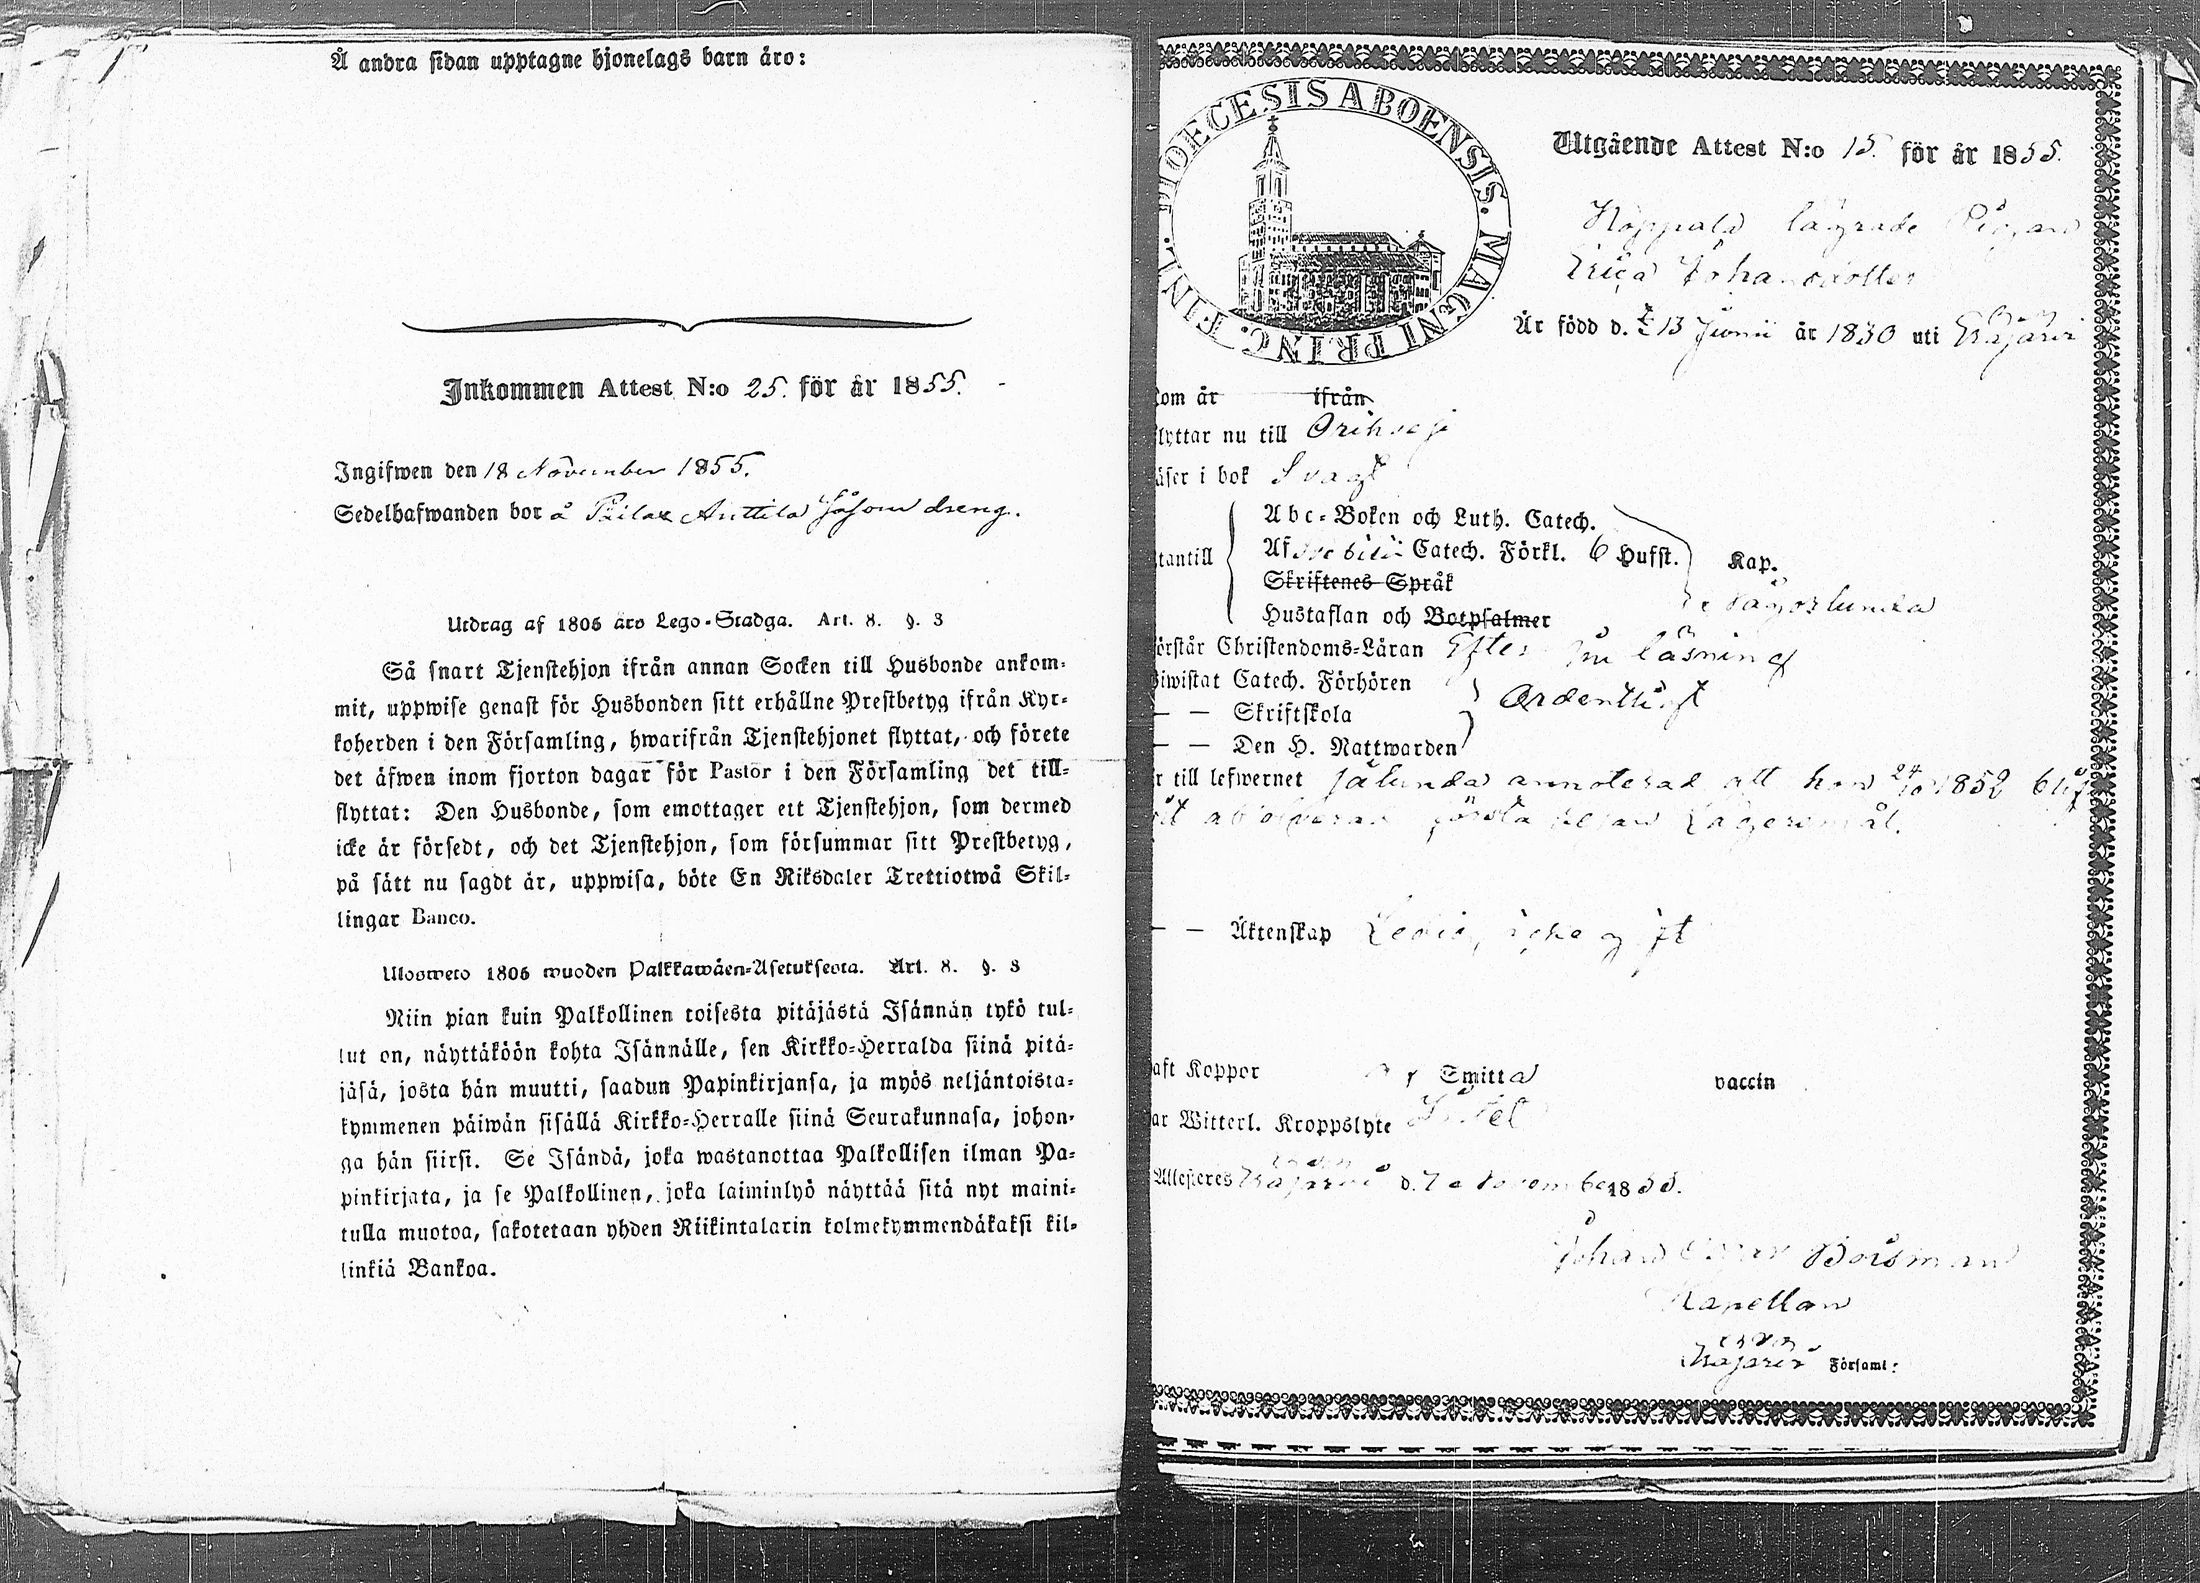 Å andra sidan upptagne hjonelags barn äro:
Inkommen Attest N:o 25. för år 1855.
Ingifwen den 18 November 1855.
Sedelhafwanden bor å Anttila såsom dreng.
Utdrag af 1805 års Lego-Stadga. Art. 8. §. 3
Så snart Tjenstehjon ifrån annan Socken till Husbonde ankom-
mit, uppwise genast för Husbonden sitt erhållne Prestbetyg ifrån Kyr-
koherden i den Församling, hwarifrån Tjenstehjonet flyttat, och förete
det äfwen inom fjorton dagar för Pastor i den Församling det till-
flyttat: Den Husbonde, som emottager ett Tjenstehjon, som dermed
icke är försedt, och det Tjenstehjon, som försummar sitt Prestbetyg,
på sätt nu sagdt är, uppwisa, böte En Riksdaler Trettiotwå Skil-
lingar Banco.
Ulosweto 1805 wuoden Palkkawäen-Asetuksesta. Art. 8. §. 3
Niin pian kuin Palkollinen toisesta pitäjästä Isännän tykö tul-
lut on, näyttäköön kohta Isännälle, sen Kirkko-Herralda siinä pitä-
jäsä, josta hän muutti, saadun Papinkirjansa, ja myös neljäntoista-
kymmenen päiwän sisällä Kirkko-Herralle siinä Seurakunnasa, johon-
ga hän siirsi. Se Isändä, joka wastanottaa Palkollisen ilman Pa-
pinkirjata, ja se Palkollinen, joka laiminlyö näyttää sitä nyt maini-
tulla muotoa, sakotetaan yhden Riikintalarin kolmekymmendäkaksi kil-
linkiä Bankoa.
DIOECESIS ABOENSIS. MAGNI PRINC. FINL.
Utgående Attest N:o 15. för år 1855.
lägrade Pigan
Erica Johansdotter
Är född d. 13 Junii år 1830 uti
om år ifrån
lyttar nu till
äser i bok Svagt
Abc-Boken och Luth. Catech.
Af Catech. Förkl. 6 Hufst. Kap.
tantill
Skriftenes Språk
Hustaflan och Botpsalmer
örstår Christendoms-Läran Efter sin läsning
iwistat Catech. Förhören
— — Skriftskola Ordentligt
— — Den H. Nattwarden
r till lefwernet sålunda annoterad att hon 24/10 1852 blif
första resan Lägersmål.
— — Äktenskap Ledig, icke gift
aft Koppor Smitta vaccin
ar Witterl. Kroppslyte Intet
Attesteres d. 7 November 1855.
Johan Boisman
Kapellan
Församl: